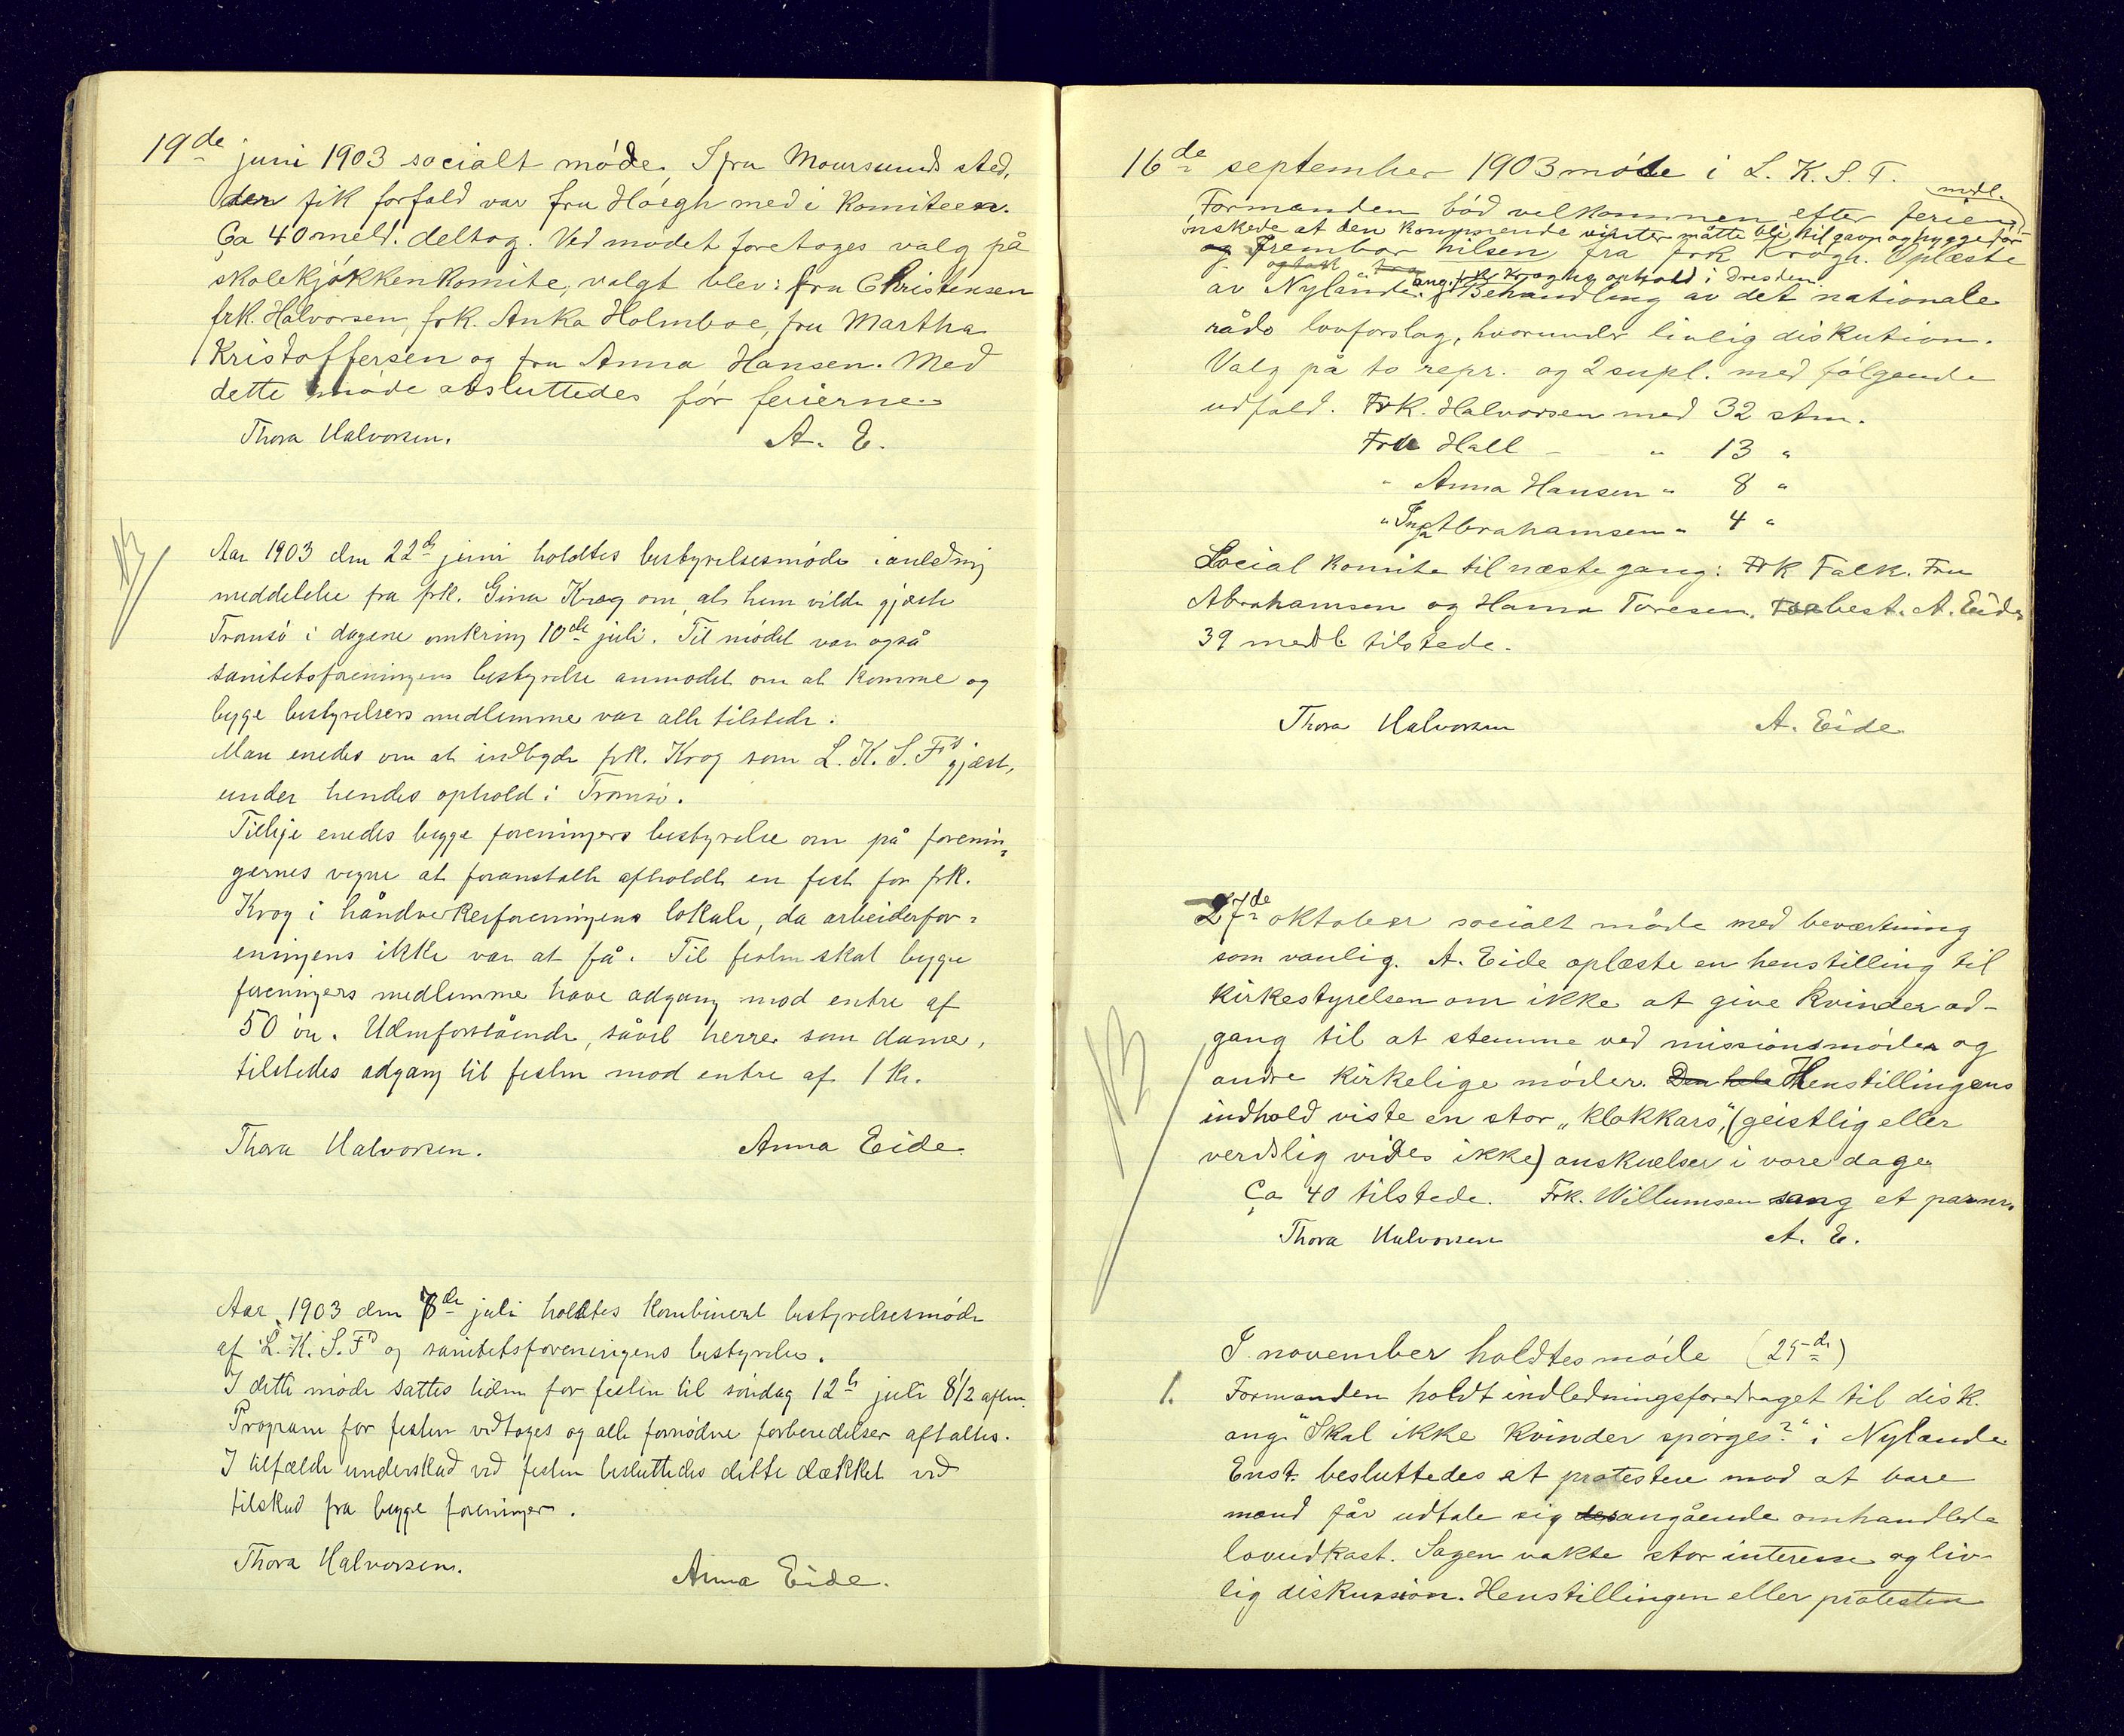 19de juni 1903 socialt møde. I fru Moursunds sted,
der fik forfald var fru Høegh med i komiteen.
Ca 40 meld. deltog. Ved mødet foretoges valg på
skolekjøkkenkomite, valgt blev: fru Christensen
frk. Halvorsen, frk. Anka Holmboe, fru Martha
Kristoffersen og fru Anna Hansen. Med
dette møde absluttedes før ferierne.
Thora Halvorsen. A. E.
Aar 1903 den 22de juni holdtes bestyrelsesmøde i anledning
meddelelse fra frk. Gina Krog om, at hun vilde gjæste
Tromsø i dagene omkring 10de juli. Til mødet var også
sanitetsforeningens bestyrelse anmodet om at komme og
begge bestyrelsers medlemmer var alle tilstede.
Man enedes om at indbyde frk. Krog som L. K. S. Fs gjæst,
under hendes ophold i Tromsø.
Tillige enedes begge foreningers bestyrelse om på forenin=
gernes vegne at foranstalte afholdt en fest for frk.
Krog i håndverkerforeningens lokale, da arbeiderfor=
eningens ikke var at få. Til festen skal begge
foreningers medlemmer have adgang mod entre af
50 øre. Udenforstående, såvel herrer som damer,
tilstedes adgang til festen mod entre af 1 kr.
Thora Halvorsen. Anna Eide.
Aar 1903 den 7de juli holdtes kombineret bestyrelsesmøde
af L. K. S. Fs og sanitetsforeningens bestyrelser.
I dette møde sattes tiden for festen til søndag 12te juli 8 1/2 aften.
Program for festen vedtoges og alle fornødne forberedelser aftaltes.
I tilfælde underskud ved festen besluttedes dette dækket ved
tilskud fra begge foreninger.
Thora Halvorsen. Anna Eide.
16de september 1903 møde i L. K. S. T.
Formanden bød velkommen efter ferien, medl.
ønskede at den kommende vinter måtte bli til gavn og hygge for
og frembar hilsen fra frk Krogh. Oplæste
ang. frk Kroghs ophold i Dresden.
av Nylænde. Behandling av det nationale
råds lovforslag, hvorunder livlig diskution.
Valg på to repr. og 2 supl. med følgende
udfald. Frk. Halvorsen med 32 stm.
Fru Hall - " 13 "
" Anna Hansen " 8 "
" Inga Abrahamsen " 4 "
Social komite til næste gang: Frk Falk. Fru
Abrahamsen og Hanna Toresen. Forbest. A. Eide
39 medl tilstede.
Thora Halvorsen A. Eide
27de oktober socialt møde med beværtning
som vanlig. A. Eide oplæste en henstilling til
kirkestyrelsen om ikke at give kvinder ad-
gang til at stemme ved missionsmøder og
andre kirkelige møder. Den hele Henstillingens
indhold viste en stor „klokkars", (geistlig eller
verdslig vides ikke) anskuelser i vore dage
Ca 40 tilstede. Frk. Willumsen sang et par nr.
Thora Halvorsen A. E.
I november holdtes møde (25de)
1. Formanden holdt indledningsforedraget til disk.
ang. "Skal ikke kvinder spørges?" i Nylænde
Enst. besluttedes at protestere mod at bare
mænd får udtale sig der angående omhandlede
lovudkast. Sagen vakte stor interesse og liv-
lig diskussion. Henstillingen eller protesten